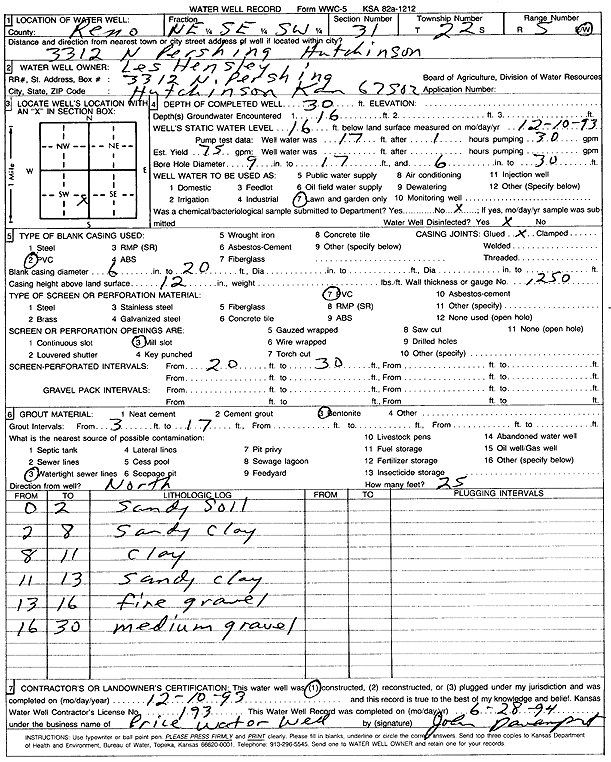 WATER WELL RECORD Form WWC-5 KSA 82a-1212
1 LOCATION OF WATER WELL: Fraction Section Number Township Number Range Number
County: Reno NE ¼ SE ¼ SW ¼ 31 T 22 S R 5 E/W
Distance and direction from nearest town or city street address of well if located within city?
3312 N Pershing Hutchinson
2 WATER WELL OWNER: Les Hensley
RR#, St. Address, Box # : 3312 N. Pershing Board of Agriculture, Division of Water Resources
City, State, ZIP Code : Hutchinson Kan 67502 Application Number:
3 LOCATE WELL'S LOCATION WITH AN "X" IN SECTION BOX:
N
NW NE
W E
SW SE
X
S
1 Mile
4 DEPTH OF COMPLETED WELL 30 ft. ELEVATION:
Depth(s) Groundwater Encountered 1. 16 ft. 2. ft. 3. ft.
WELL'S STATIC WATER LEVEL 16 ft. below land surface measured on mo/day/yr 12-10-93
Pump test data: Well water was 17 ft. after 1 hours pumping 30 gpm
Est. Yield 75 gpm: Well water was ft. after hours pumping gpm
Bore Hole Diameter 9 in. to 17 ft., and 6 in. to 30 ft.
WELL WATER TO BE USED AS: 5 Public water supply 8 Air conditioning 11 Injection well
1 Domestic 3 Feedlot 6 Oil field water supply 9 Dewatering 12 Other (Specify below)
2 Irrigation 4 Industrial 7 Lawn and garden only 10 Monitoring well
Was a chemical/bacteriological sample submitted to Department? Yes No X ; If yes, mo/day/yr sample was submitted
Water Well Disinfected? Yes X No
5 TYPE OF BLANK CASING USED: 5 Wrought iron 8 Concrete tile CASING JOINTS: Glued X Clamped
1 Steel 3 RMP (SR) 6 Asbestos-Cement 9 Other (specify below) Welded
2 PVC 4 ABS 7 Fiberglass Threaded
Blank casing diameter 6 in. to 20 ft., Dia in. to ft., Dia in. to ft.
Casing height above land surface 12 in., weight lbs./ft. Wall thickness or gauge No. .250
TYPE OF SCREEN OR PERFORATION MATERIAL: 7 PVC 10 Asbestos-cement
1 Steel 3 Stainless steel 5 Fiberglass 8 RMP (SR) 11 Other (specify)
2 Brass 4 Galvanized steel 6 Concrete tile 9 ABS 12 None used (open hole)
SCREEN OR PERFORATION OPENINGS ARE: 5 Gauzed wrapped 8 Saw cut 11 None (open hole)
1 Continuous slot 3 Mill slot 6 Wire wrapped 9 Drilled holes
2 Louvered shutter 4 Key punched 7 Torch cut 10 Other (specify)
SCREEN-PERFORATED INTERVALS: From 20 ft. to 30 ft., From ft. to ft.
From ft. to ft., From ft. to ft.
GRAVEL PACK INTERVALS: From ft. to ft., From ft. to ft.
From ft. to ft., From ft. to ft.
6 GROUT MATERIAL: 1 Neat cement 2 Cement grout 3 Bentonite 4 Other
Grout Intervals: From 3 ft. to 17 ft., From ft. to ft., From ft. to ft.
What is the nearest source of possible contamination: 10 Livestock pens 14 Abandoned water well
1 Septic tank 4 Lateral lines 7 Pit privy 11 Fuel storage 15 Oil well/Gas well
2 Sewer lines 5 Cess pool 8 Sewage lagoon 12 Fertilizer storage 16 Other (specify below)
3 Watertight sewer lines 6 Seepage pit 9 Feedyard 13 Insecticide storage
Direction from well? North How many feet? 25
FROM TO LITHOLOGIC LOG FROM TO PLUGGING INTERVALS
0 2 Sandy Soil
2 8 Sandy clay
8 11 clay
11 13 sandy clay
13 16 fine gravel
16 30 medium gravel
7 CONTRACTOR'S OR LANDOWNER'S CERTIFICATION: This water well was (1) constructed, (2) reconstructed, or (3) plugged under my jurisdiction and was
completed on (mo/day/year) 12-10-93 and this record is true to the best of my knowledge and belief. Kansas
Water Well Contractor's License No. 193 This Water Well Record was completed on (mo/day/yr) 6-28-94
under the business name of Price Water Well by (signature) John Davenport
INSTRUCTIONS: Use typewriter or ball point pen. PLEASE PRESS FIRMLY and PRINT clearly. Please fill in blanks, underline or circle the correct answers. Send top three copies to Kansas Department
of Health and Environment, Bureau of Water, Topeka, Kansas 66620-0001. Telephone: 913-296-5545. Send one to WATER WELL OWNER and retain one for your records.